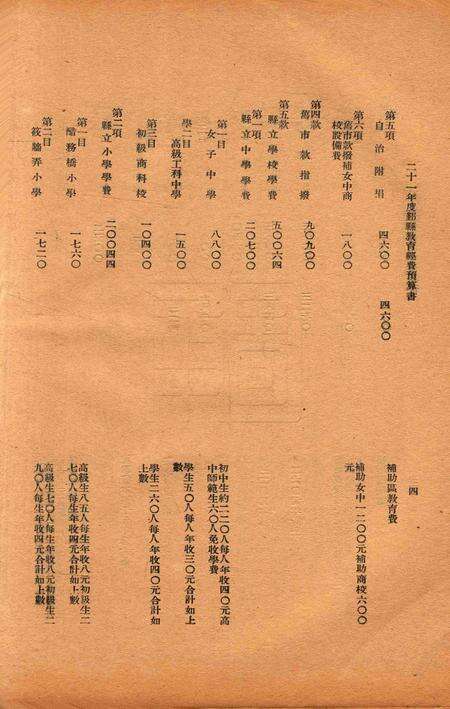 二十一年度鄞縣教育經費預算書
四
第五項
自治附捐 四六〇〇 四六〇〇 補助區教育費
第六項
舊市款撥補女中商校設備費 一八〇〇 補助女中一二〇〇元補助商校六〇〇元
第四款
舊市款指撥 九〇九〇〇
第五款
縣立學校學費 五〇〇六四
第一項
縣立中學學費 二〇七〇〇
第一目
女子中學 八八〇〇 初中生約二二〇人每人年收四〇元高中師範生六〇人免收學費
學二目
高級工科中學 一五〇〇 學生五〇人每人年收三〇元合計如上數
第三目
初級商科校 一〇四〇〇 學生二六〇人每人年收四〇元合計如上數
第二項
縣立小學學費 二〇〇四四
第一目
醋務橋小學 一七六〇 高級生八五人每生年收八元初級生二七〇人每生年收四元合計如上數
第二目
筱牆弄小學 一七二〇 高級生七〇人每生年收八元初級生二九〇人每生年收四元合計如上數